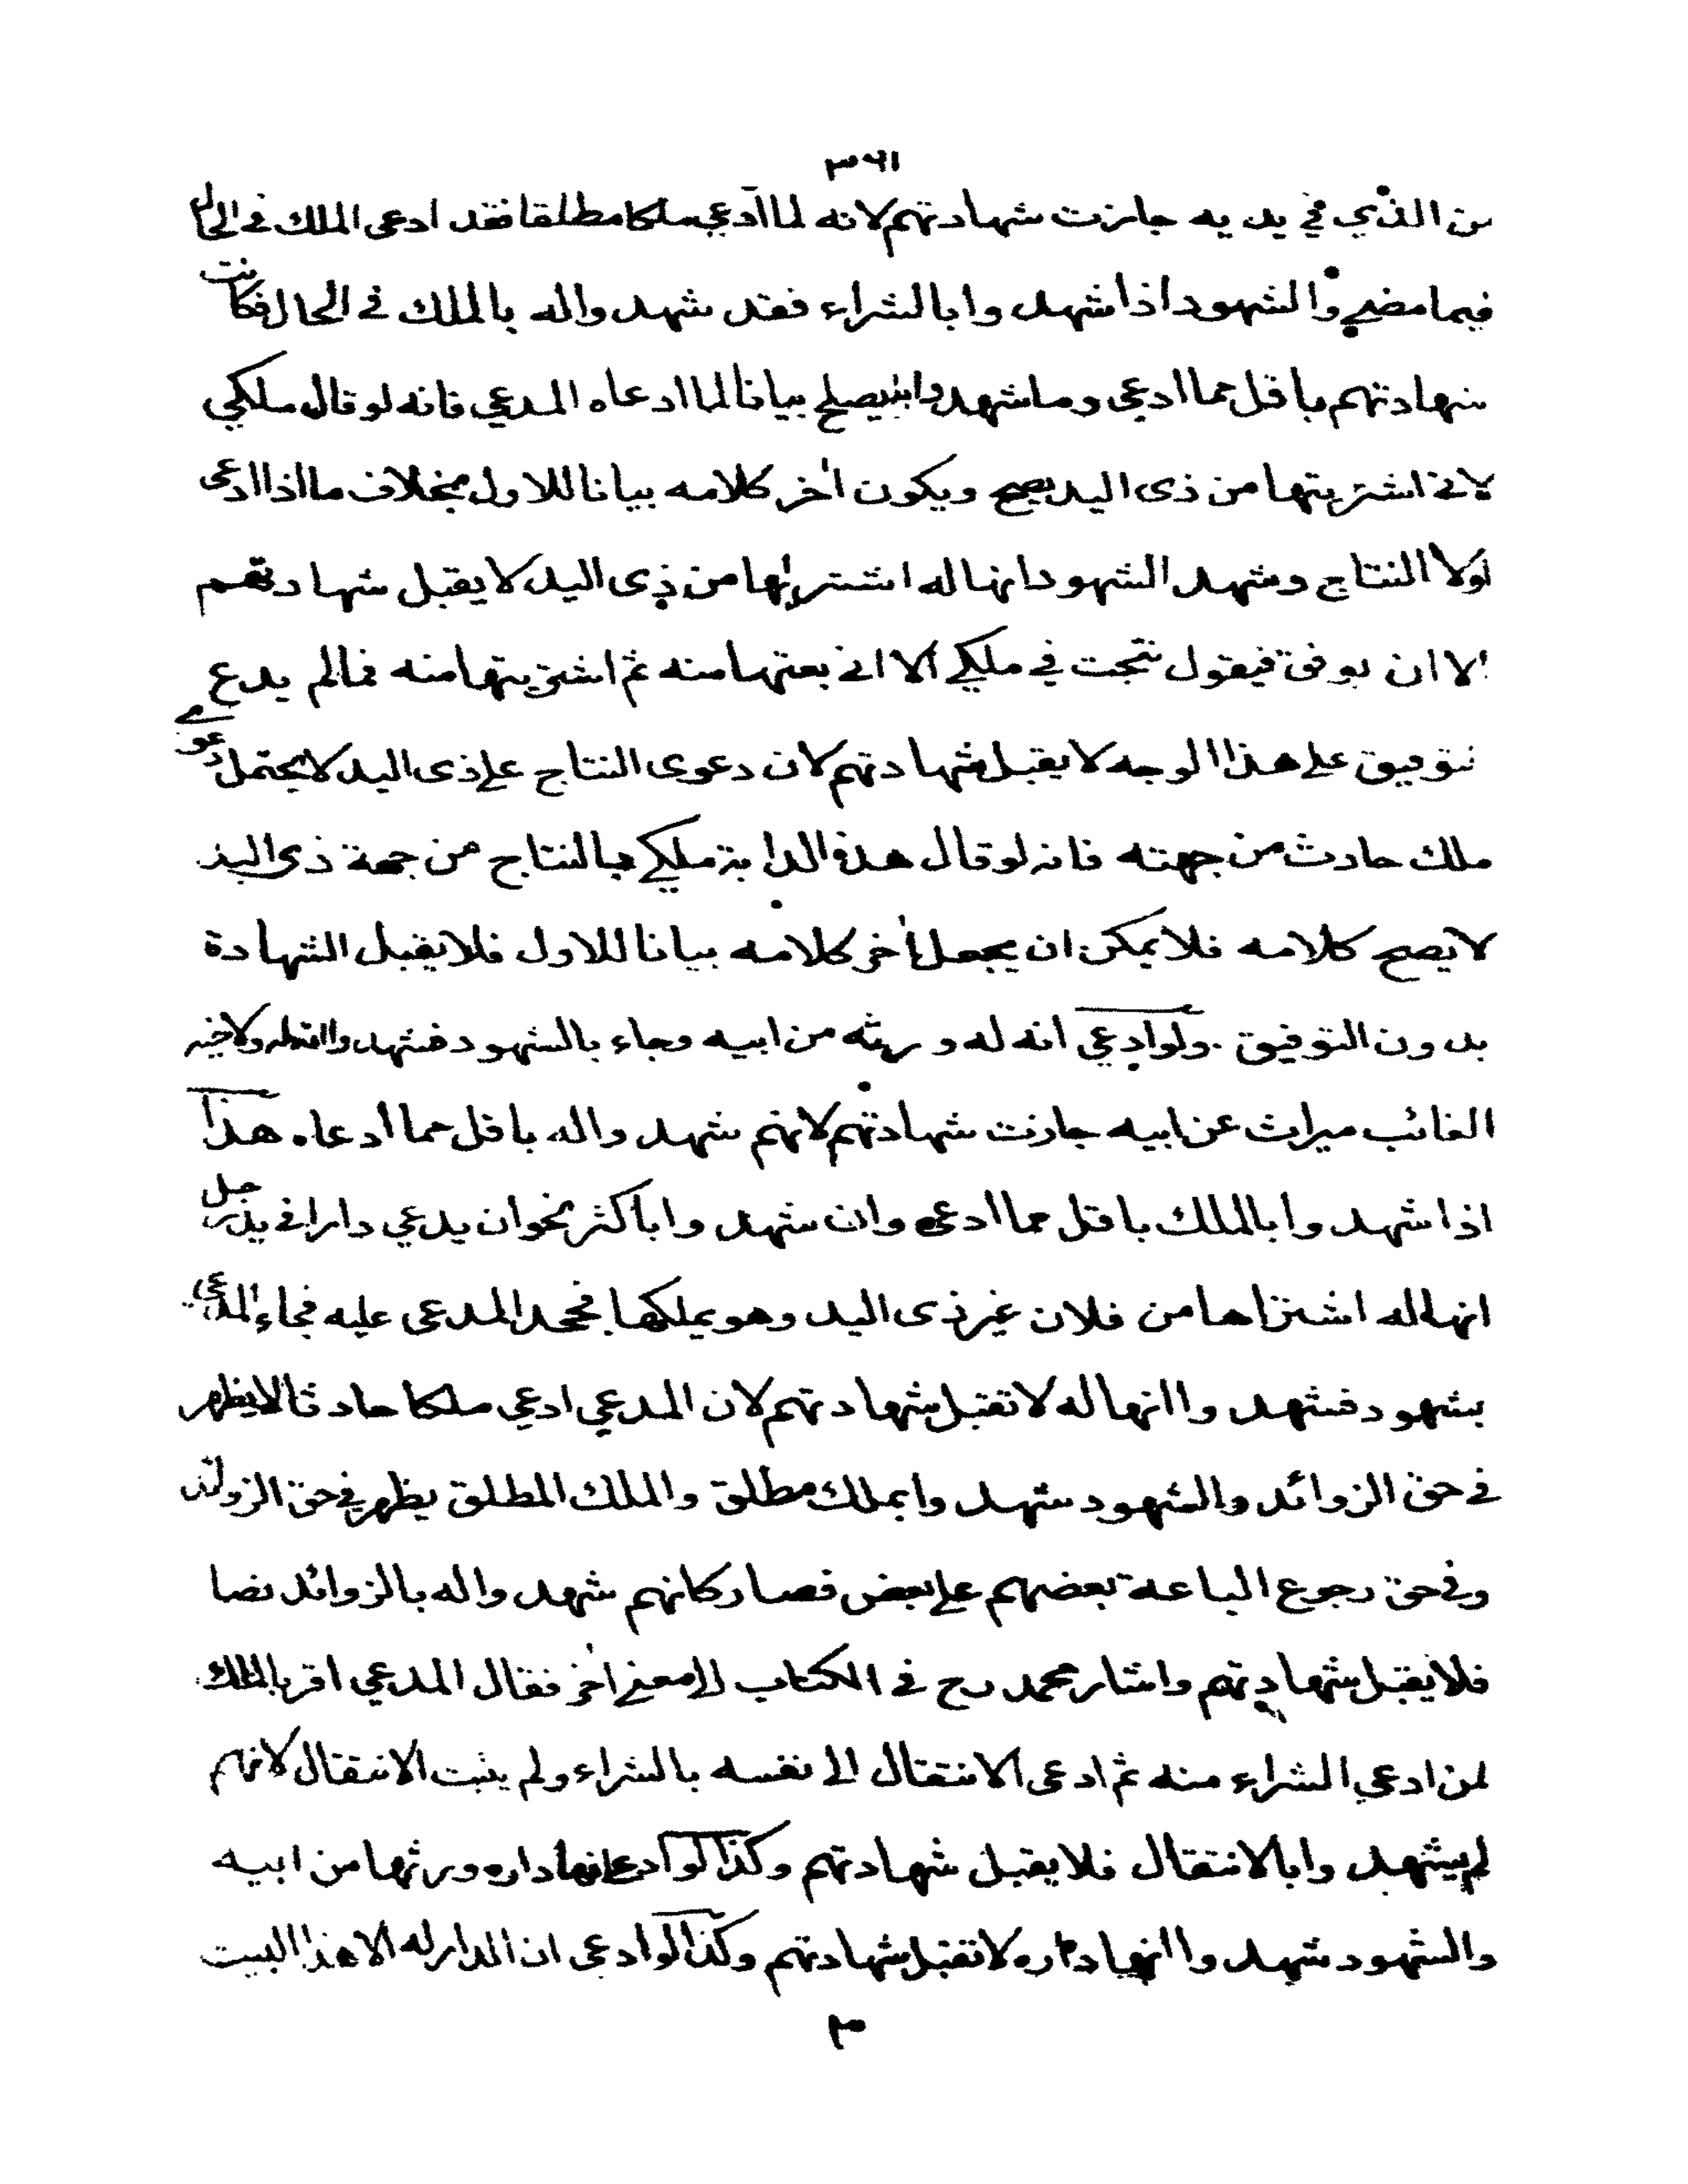 ٣٦١
من الذي في يديه جازت شهادتهم لانه لما ادعي ملكا مطلقا فقد ادعى الملك في الحال
فيما مضي والشهود اذا شهدوا بالشراء فقد شهدوا له بالملك في الحال فكانت
شهادتهم باقل مما ادعى وما شهدوا به يصلح بيانا لما ادعاه المدعي فانه لو قال ملكي
لاني اشتريتها من ذى اليد يصح ويكون اخر كلامه بيانا للاول بخلاف ما اذا ادعى
اولا النتاج وشهد الشهود انها له اشتراها من ذى اليد لا يقبل شهادتهم
الا ان يوفق فيقول نتجت في ملكي الا اني بعتها منه ثم اشتريتها منه فما لم يدع
توفيق على هذا الوجه لا يقبل شهادتهم لان دعوى النتاج على ذى اليد لا يحتمل دعوے
ملك حادث من جهته فانه لو قال هذه الدابة ملكي بالنتاج من جهة ذى اليد
لا يصح كلامه فلا يمكن ان يجعل اخر كلامه بيانا للاول فلا يقبل الشهادة
بدون التوفيق . ولو ادعي انه له ورثه من ابيه وجاء بالشهود فشهدوا انه له ولاخيه
الغائب ميراث عن ابيه جازت شهادتهم لانهم شهدوا له باقل مما ادعاه هذا
اذا شهدوا بالملك باقل مما ادعى وان شهدوا باكثر نحو ان يدعي دارا في يد رجل
انها له اشتراها من فلان غير ذى اليد وهو يملكها فجحد المدعى عليه فجاء المدعي
بشهود فشهدوا انها له لا تقبل شهادتهم لان المدعي ادعي ملكا حادثا لا يظهر
في حق الزوائد والشهود شهدوا بملك مطلق والملك المطلق يظهر في حق الزوائد
وفي حق رجوع الباعة بعضهم على بعض فصار كانهم شهدوا له بالزوائد نصا
فلا يقبل شهادتهم واشار محمد رح في الكتاب الى معنى اخر فقال المدعي اقر بالملك
لمن ادعي الشراء منه ثم ادعى الانتقال الى نفسه بالشراء ولم يثبت الانتقال لانهم
لم يشهدوا بالانتقال فلا يقبل شهادتهم وكذا لو ادعى انها داره ورثها من ابيه
والشهود شهدوا انها داره لا تقبل شهادتهم وكذا لو ادعى ان الدار له الا هذا البيت